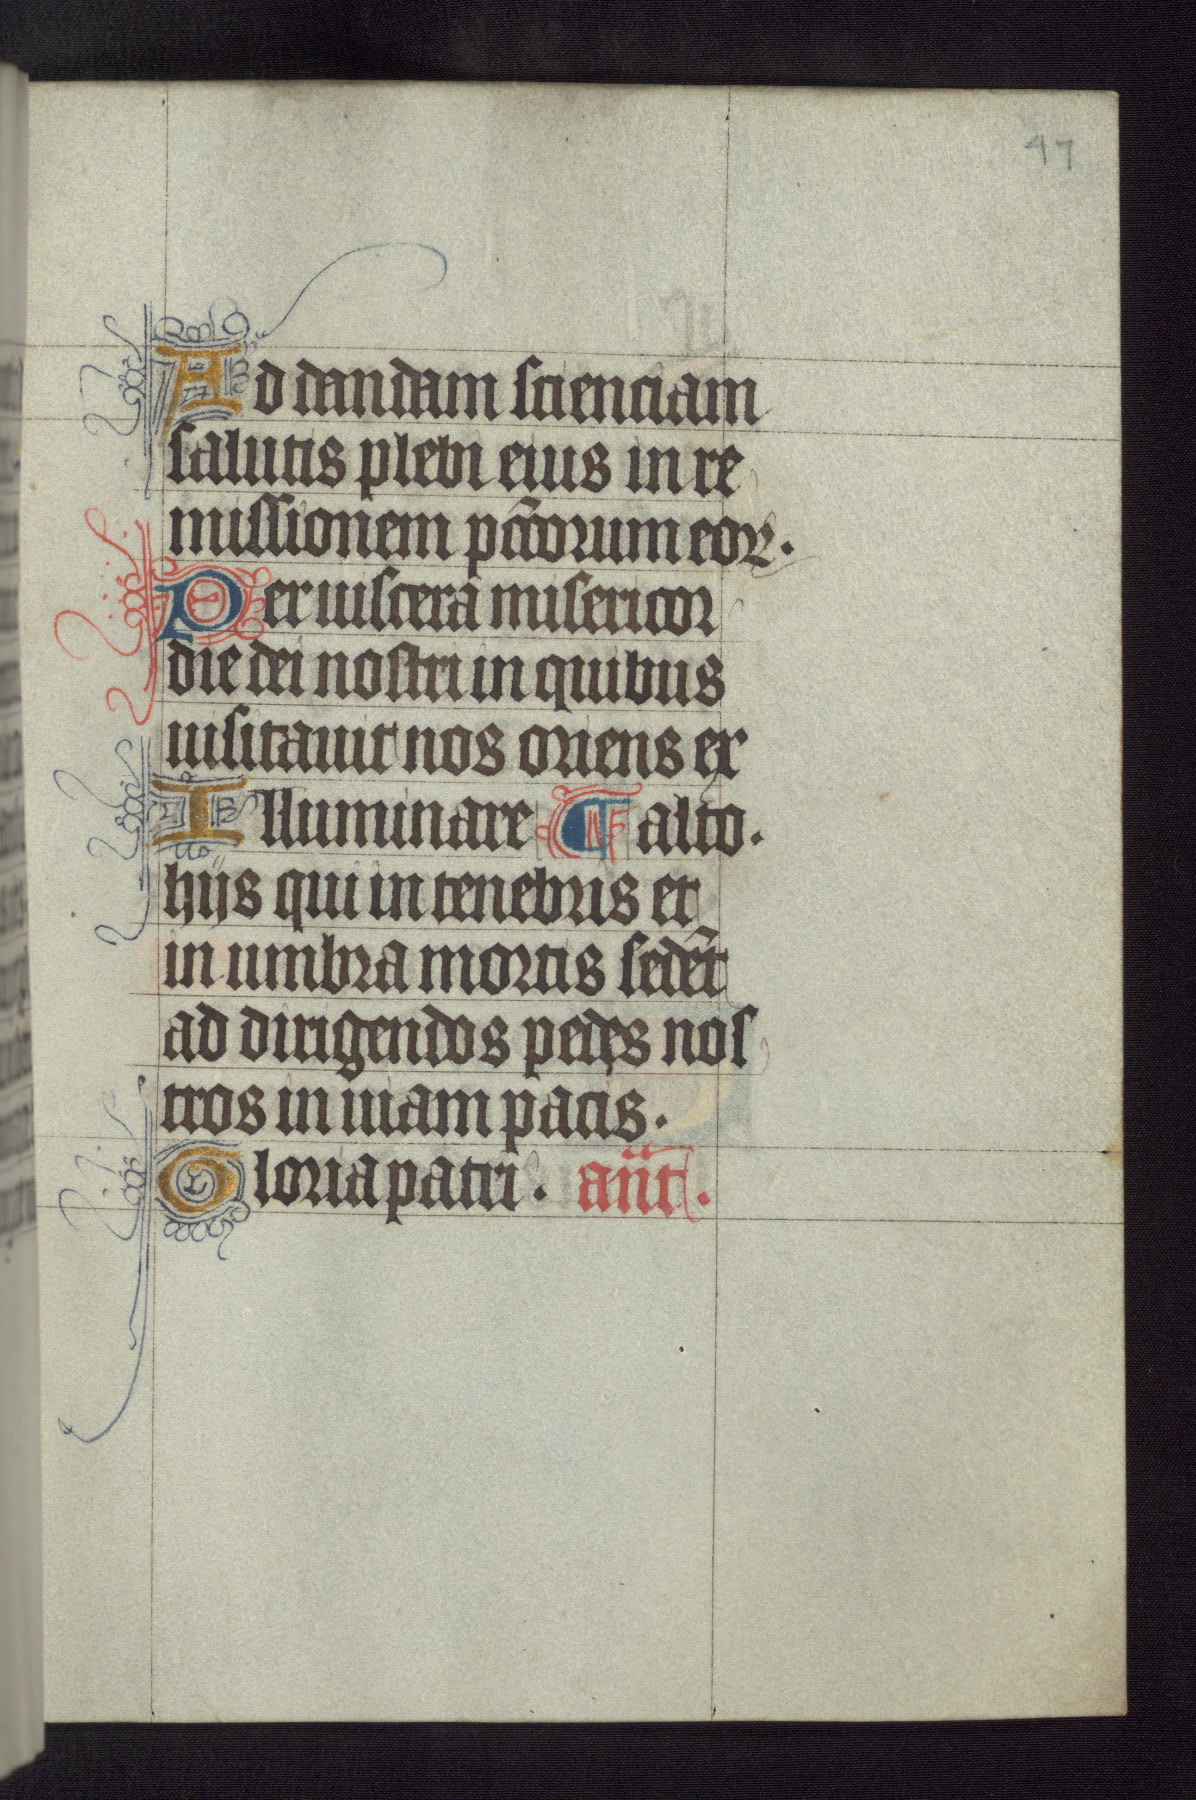 47
Ad dandam scienciam
salutis plebi eius in re
missionem pctōrum eoꝝ.
Per uiscera misericor
die dei nostri in quibus
uisitauit nos oriens ex
Illuminare ¶ alto.
hijs qui in tenebris et
in umbra mortis sedēt
ad dirigendos pedes nos
tros in uiam pacis.
Gloria patri. añt.